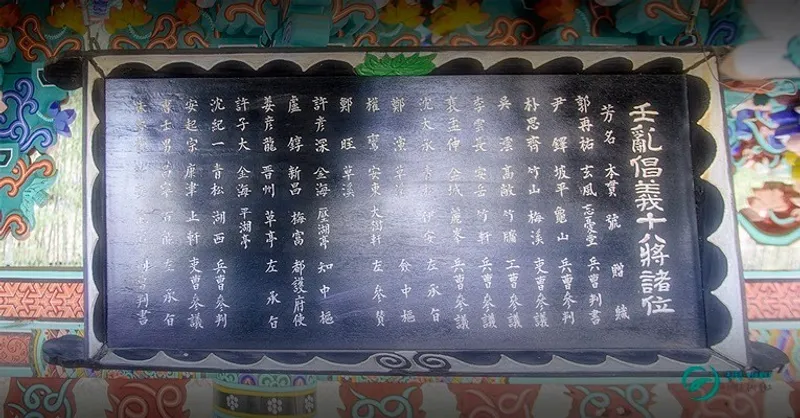 壬亂倡義十八將諸位
芳名 本貫 號 贈職
郭再祐 玄風 忘憂堂 兵曹判書
尹鐸 坡平 龜山 兵曹參判
朴思齊 竹山 梅溪 吏曹參議
吳澐 高敞 竹牖 工曹參議
李雲長 安岳 竹軒 兵曹參議
裵孟伸 金城 麓峯 兵曹參議
沈大承 左承旨
鄭演 草溪 僉中樞
權鸞 安東 左參贊
鄭旺 草溪
許彦深 金海 壓湖亭 知中樞
盧錞 新昌 梅富 都護府使
姜彦龍 晋州 草亭 左承旨
許子大 金海 平湖亭
沈紀一 青松 湖西 兵曹參判
安起宗 康津 上軒 兵曹參議
士男 宜寧 左承旨
判書